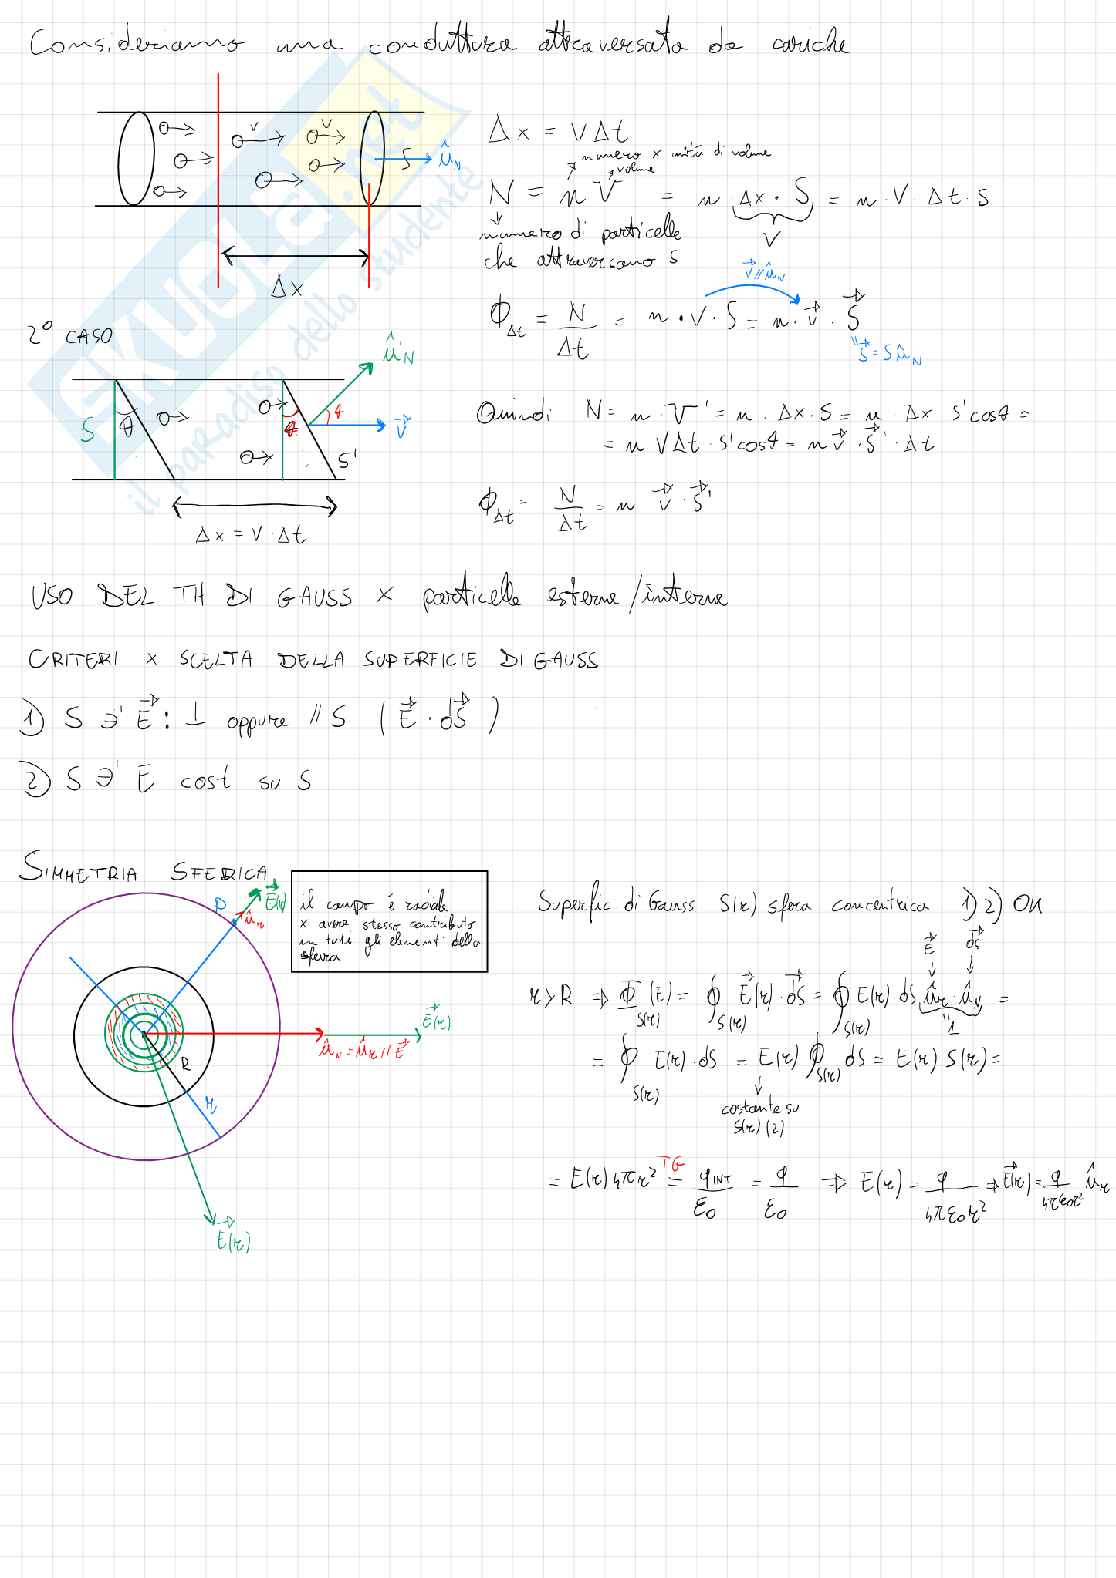 Consideriamo una conduttura attraversata da cariche
Δx = v Δt
numero x unità di volume
volume
N = n V = n Δx · S = n · v · Δt · S
V
numero di particelle
che attraversano S
v
v
S
û_N
Δx
v⃗ // û_N
Φ_Δt = N/Δt = n · v · S = n · v⃗ · S⃗
S⃗ = S û_N
2° CASO
û_N
S
θ
θ
θ
v⃗
S'
Δx = v · Δt
Quindi N = n · V' = n · Δx · S = n · Δx S' cosθ =
= n v Δt · S' cosθ = n v⃗ · S⃗' · Δt
Φ_Δt = N/Δt = n v⃗ · S⃗'
USO DEL TH DI GAUSS x particelle esterne/interne
CRITERI x SCELTA DELLA SUPERFICIE DI GAUSS
1) S ∋' E⃗ : ⊥ oppure // S ( E⃗ · dS⃗ )
2) S ∋' E cost su S
SIMMETRIA SFERICA
P
û_N
E⃗(r)
il campo è radiale
x avere stesso contributo
in tutti gli elementi della
sfera
E⃗(r)
û_N = û_r // E⃗
R
r
E⃗(r)
Superfic di Gauss S(r) sfera concentrica 1) 2) OK
E⃗ dS⃗
r > R ⇒ Φ_S(r) (E) = ∮_S(r) E⃗(r) · dS⃗ = ∮_S(r) E(r) dS û_r · û_N =
"1
= ∮_S(r) E(r) · dS = E(r) ∮_S(r) dS = E(r) S(r) =
costante su
S(r) (2)
= E(r) 4πr² =^TG q_INT/ε₀ = q/ε₀ ⇒ E(r) = q/4πε₀r² ⇒ E⃗(r) = q/4πε₀r² û_r
SKUOLA.net
il paradiso dello studente